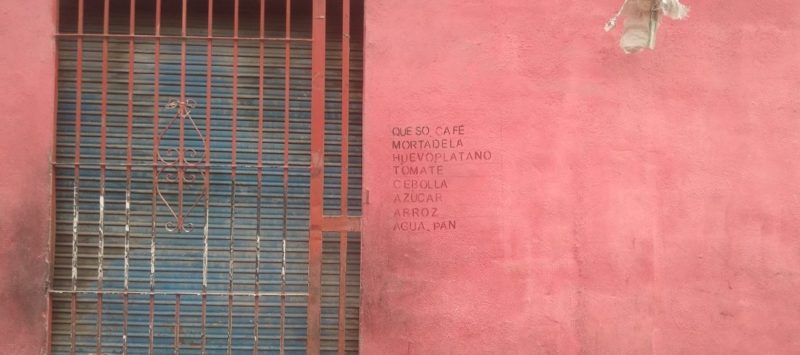 QUESO_CAFÉ
MORTADELA
HUEVOPLATANO
TOMATE
CEBOLLA
AZÚCAR
ARROZ
AGUA_PAN